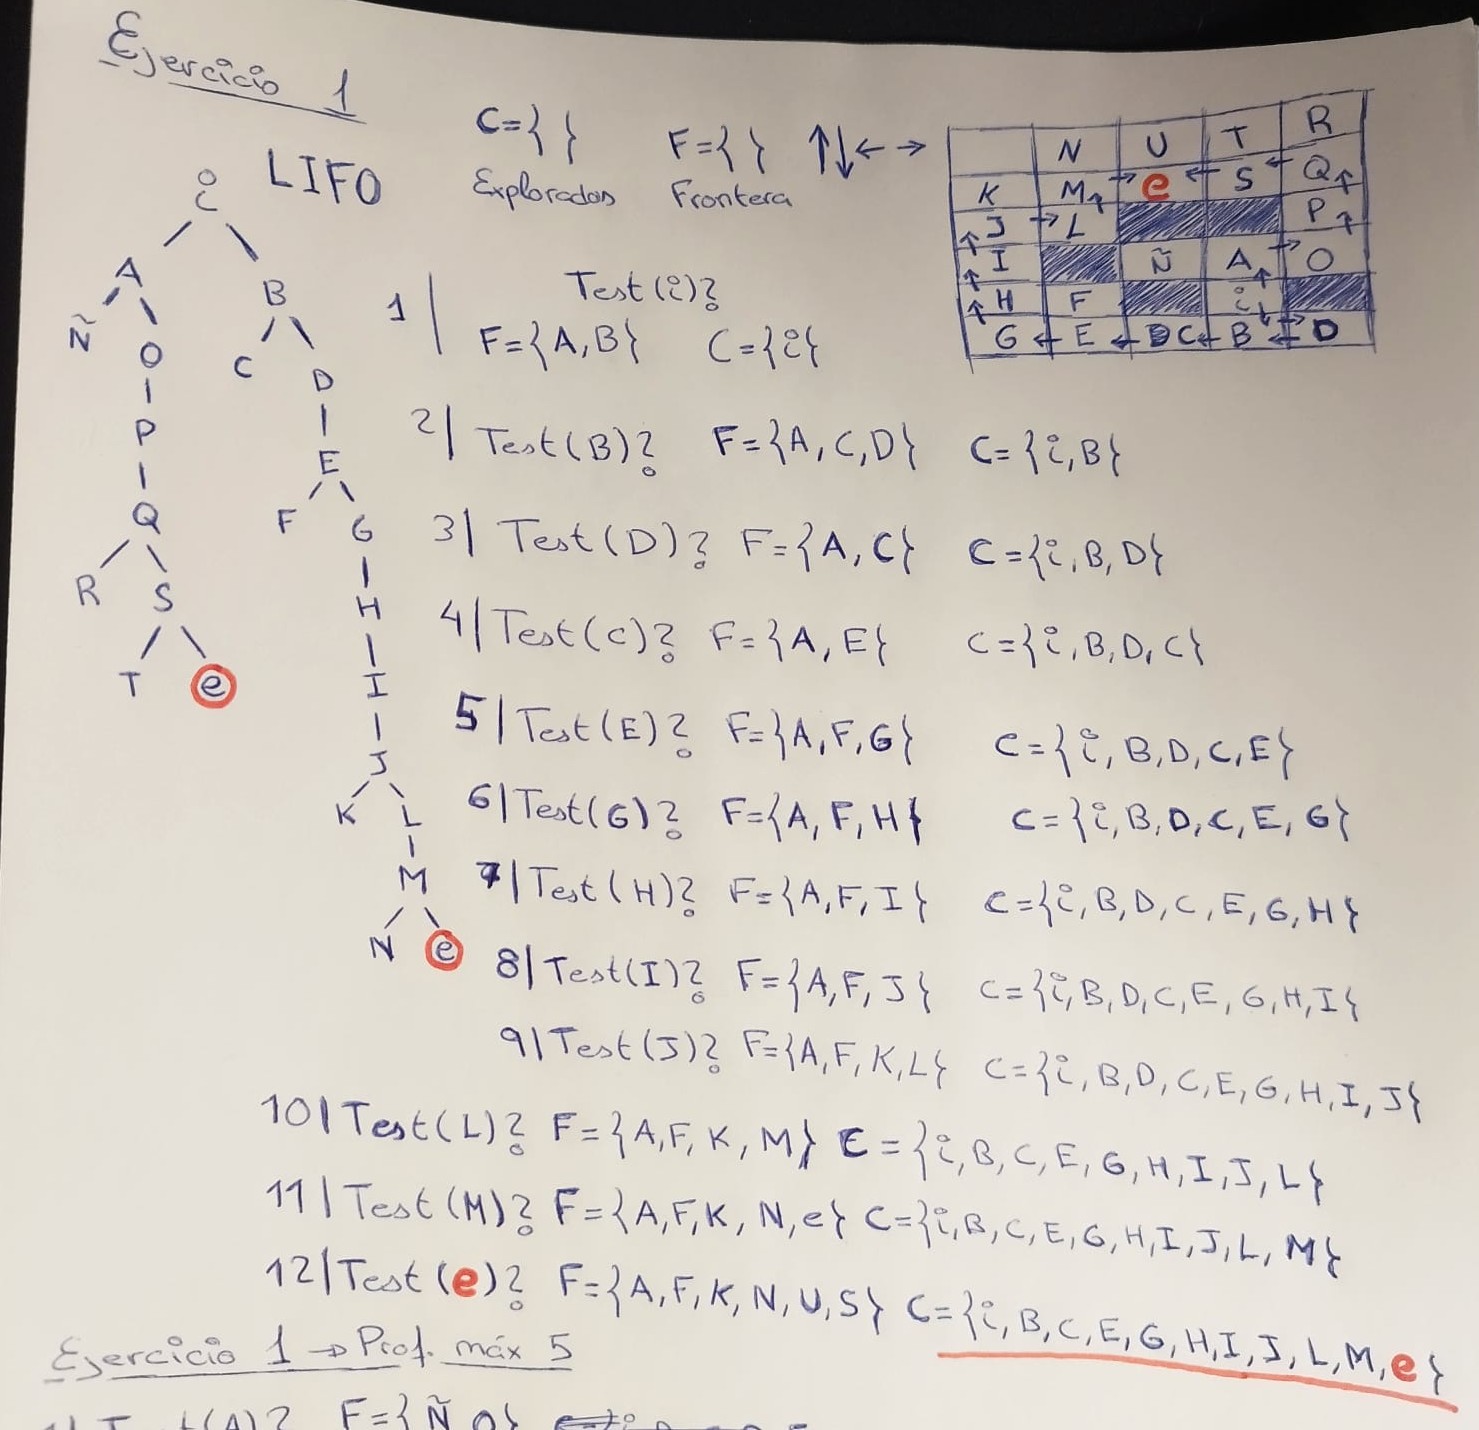 Ejercicio 1
LIFO
C={ } F={ } ↑↓←→
Explorados Frontera
N U T R
K M↑ → e ← S ← Q↑
↑J → L P↑
↑I Ñ A↑ → O
↑H F i↓
G ← E ← C ← B ← → D
i
A B
Ñ O C D
P E
Q F G
R S H
T e I
J
K L
M
N e
1| Test(i)?
F={A,B} C={i}
2| Test(B)? F={A,C,D} C={i,B}
3| Test(D)? F={A,C} C={i,B,D}
4| Test(C)? F={A,E} C={i,B,D,C}
5| Test(E)? F={A,F,G} C={i,B,D,C,E}
6| Test(G)? F={A,F,H} C={i,B,D,C,E,G}
7| Test(H)? F={A,F,I} C={i,B,D,C,E,G,H}
8| Test(I)? F={A,F,J} C={i,B,D,C,E,G,H,I}
9| Test(J)? F={A,F,K,L} C={i,B,D,C,E,G,H,I,J}
10| Test(L)? F={A,F,K,M} C={i,B,C,E,G,H,I,J,L}
11| Test(M)? F={A,F,K,N,e} C={i,B,C,E,G,H,I,J,L,M}
12| Test(e)? F={A,F,K,N,U,S} C={i,B,C,E,G,H,I,J,L,M,e}
Ejercicio 1 → Prof. máx 5
(A)? F={Ñ O}